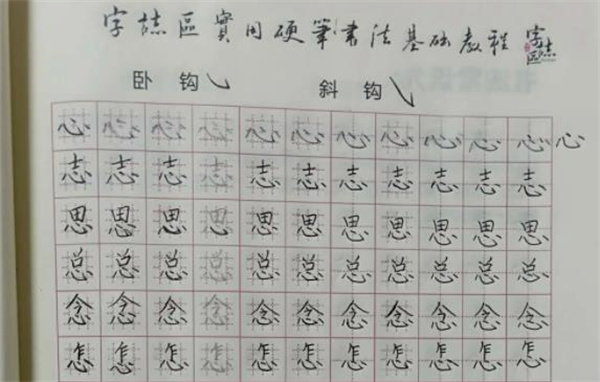 字誌區實用硬筆書法基础教程 字志区
卧 钩 斜 钩
心心心心心心心心心心心心
志志志志志志志志志志志
思思思思思思思思思思思
总总总总总总总总总总总
念念念念念念念念念念念
怎怎怎怎怎怎怎怎怎怎怎